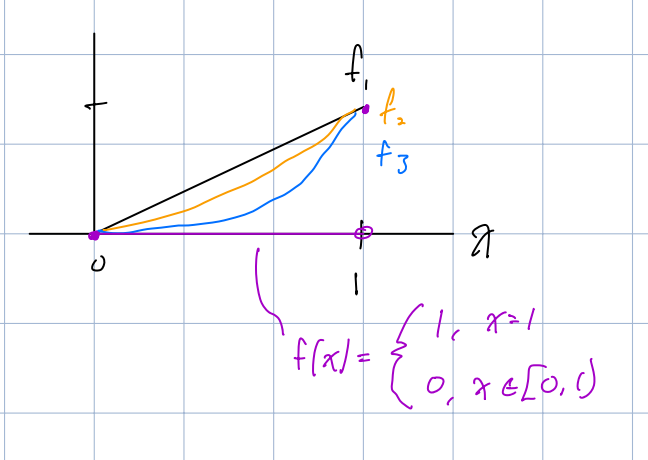 f₁
f₂
f₃
x
0
1
f(x) = { 1, x=1
0, x ∈ [0, 1)